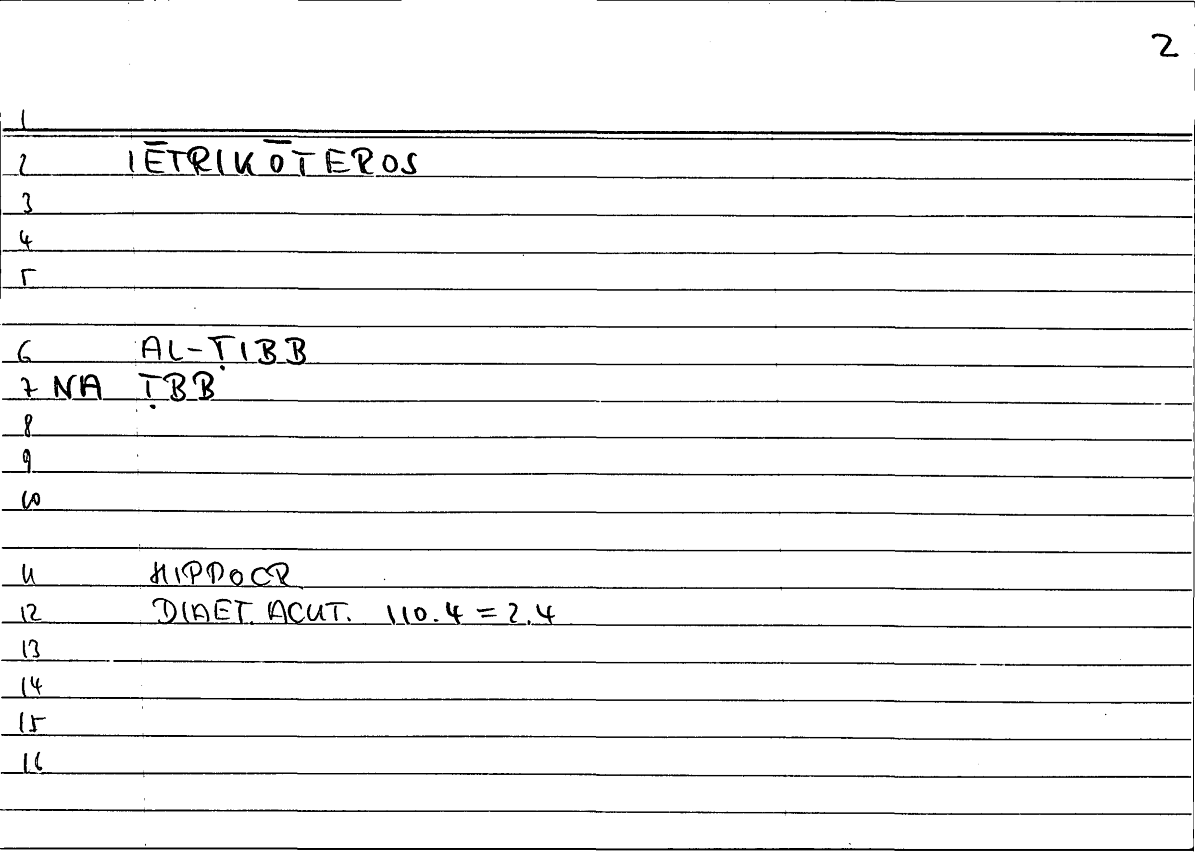 2
1
2 IĒTRIKŌTEROS
3
4
5
6 AL-ṬIBB
7 NA ṬBB
8
9
10
11 HIPPOCR
12 DIAET. ACUT. 110.4 = 2.4
13
14
15
16